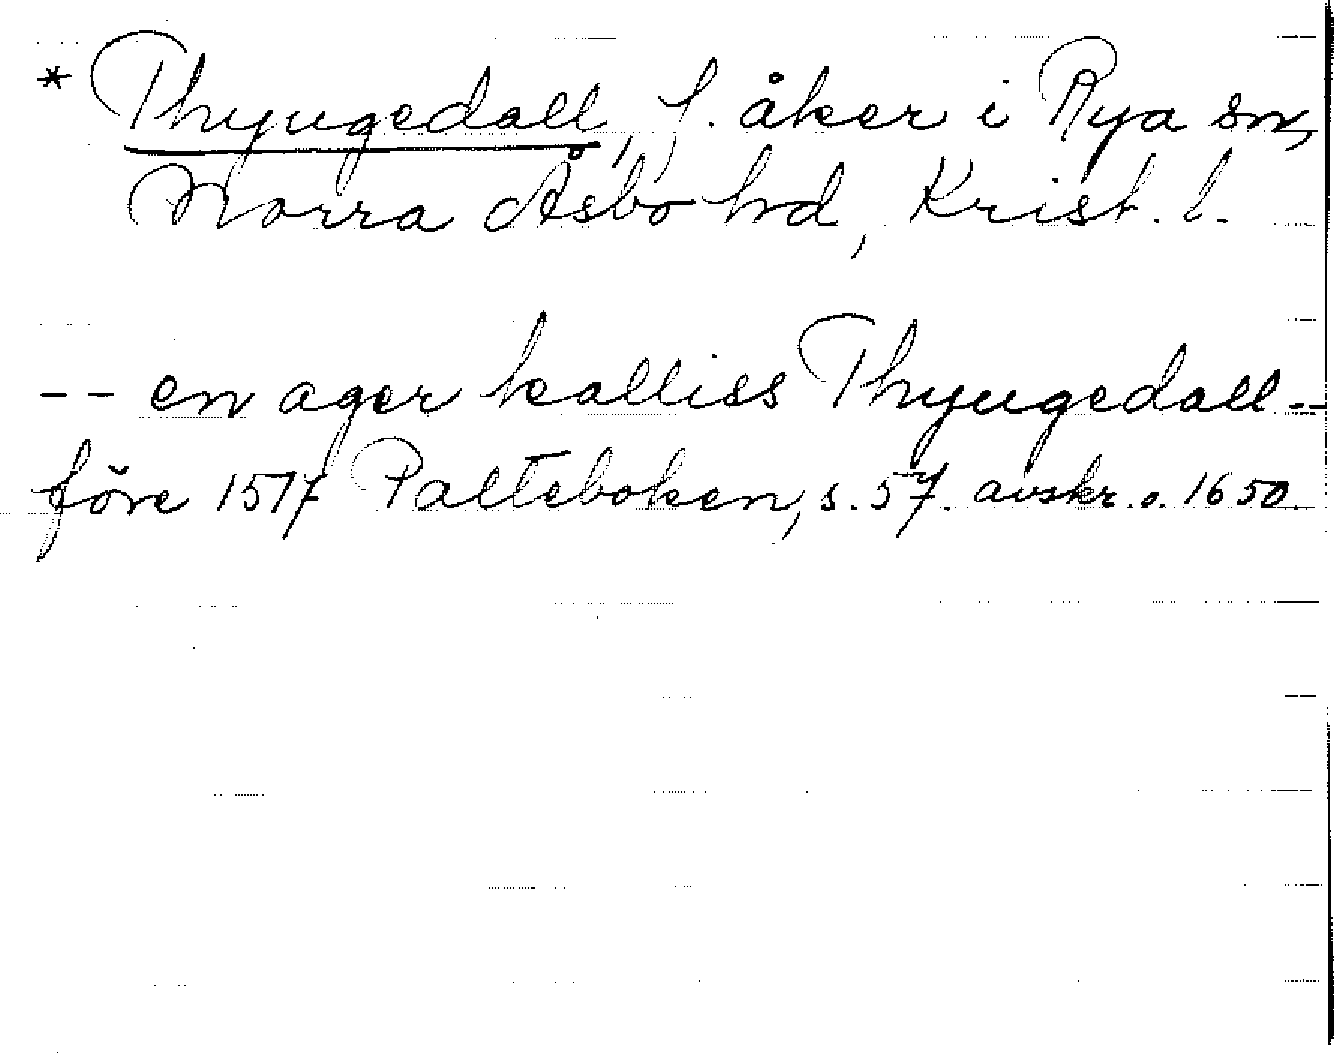 * Thyugedall, f. åker i Rya sn,
Norra Åsbo hd, Krist. l.
-- en ager kalliss Thyugedall --
före 1517 Palteboken, s. 57. avskr. o. 1650.